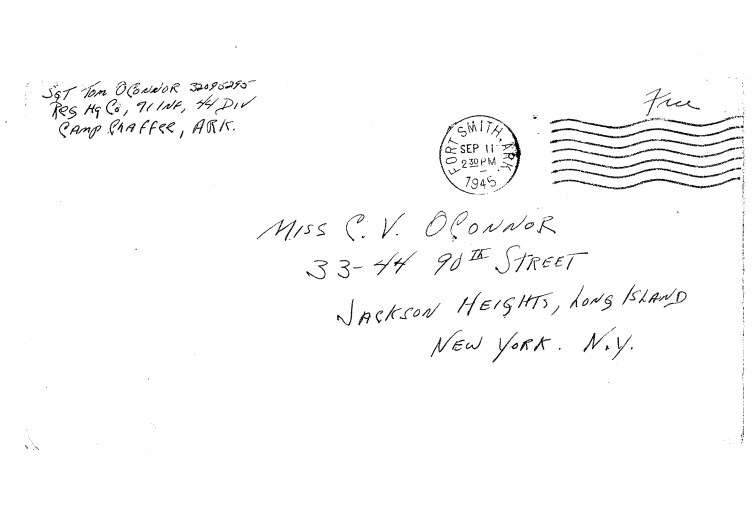 Sgt Tom O'Connor 32095295
Reg Hq Co, 71 INF, 44 DIV
Camp Chaffee, ARK.
Free
FORT SMITH, ARK.
SEP 11
2 30 PM
1945
Miss C. V. O'Connor
33-44 90TH STREET
JACKSON HEIGHTS, LONG ISLAND
NEW YORK. N.Y.